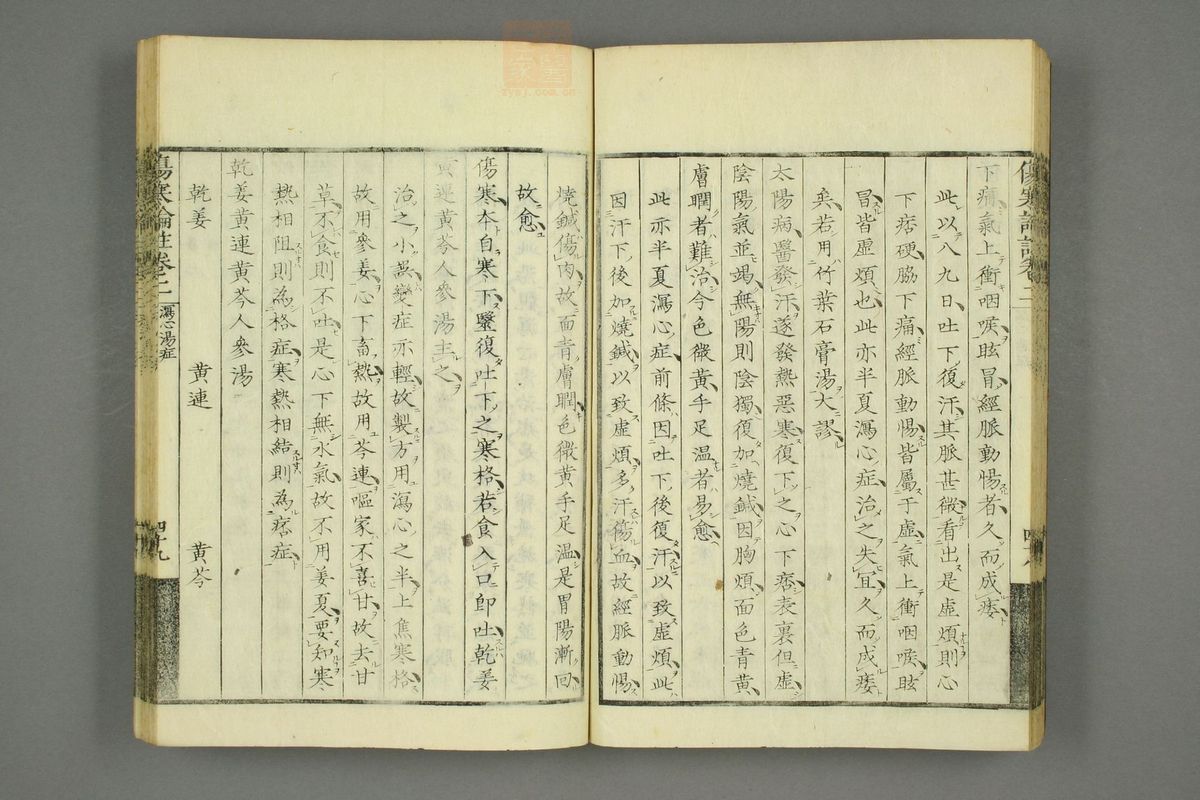 傷寒論註卷二
下痛氣上衝咽喉眩冒經脈動惕者久而成痿
此以八九日吐下復汗其脈甚微看出是虛煩則心
下痞硬脇下痛經脈動惕皆屬于虛氣上衝咽喉眩
冒皆虛煩也此亦半夏瀉心症治之失宜久而成痿
矣若用竹葉石膏湯大謬
太陽病醫發汗遂發熱惡寒復下之心下痞表裏但虛
陰陽氣並竭無陽則陰獨復加燒鍼因胸煩面色青黃
膚瞤者難治今色微黃手足溫者易愈
此亦半夏瀉心症前條因吐下後復汗以致虛煩此
因汗下後加燒鍼以致虛煩多汗傷血故經脈動惕
燒鍼傷肉故面青膚瞤色微黃手足溫是胃陽漸回
故愈
傷寒本自寒下醫復吐下之寒格若食入口即吐乾姜
黃連黃芩人參湯主之
治之小誤變症亦輕故製方用瀉心之半上焦寒格
故用參姜心下畜熱故用芩連嘔家不喜甘故去甘
草不食則不吐是心下無水氣故不用姜夏要知寒
熱相阻則為格症寒熱相結則為痞症
乾姜黃連黃芩人參湯
乾姜 黃連 黃芩
傷寒論註卷之二 瀉心湯症 四十九
zysj.com.cn